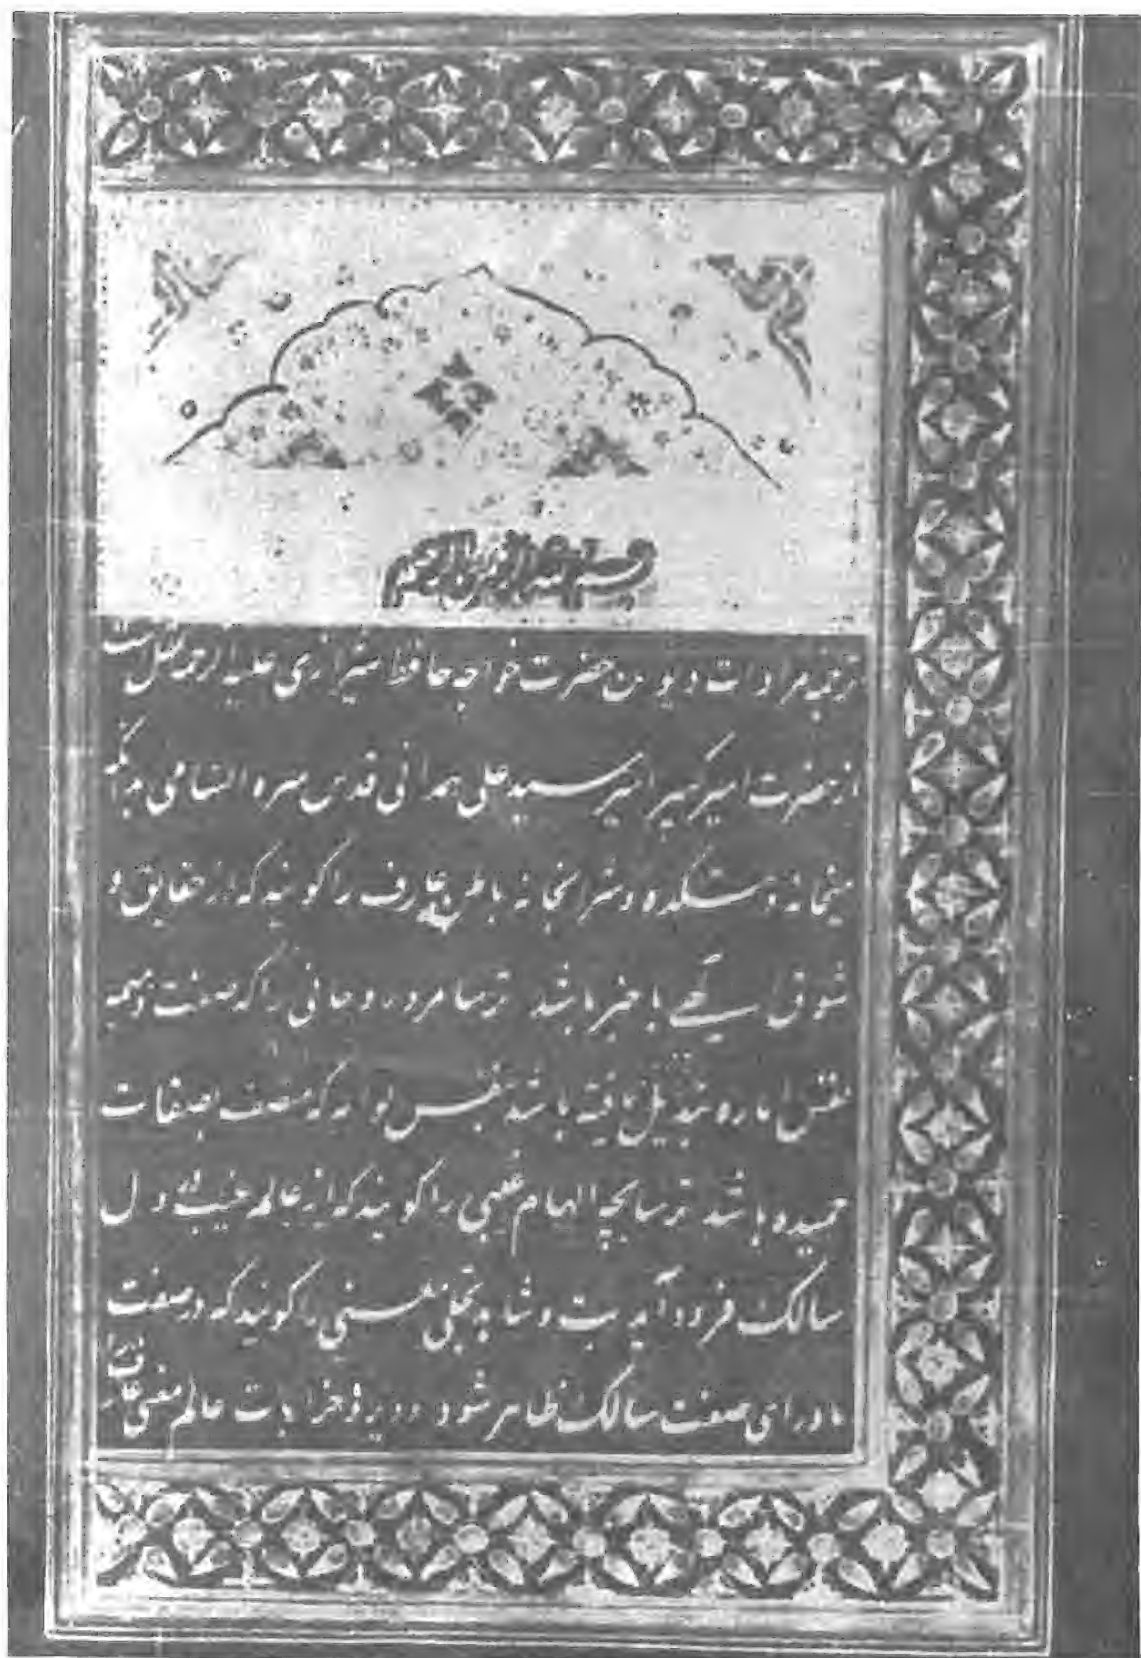 بسم الله الرحمن الرحیم
ترجمه مرادات دیوان حضرت خواجه حافظ شیرازی علیه الرحمه
از حضرت امیر کبیر امیر سید علی همدانی قدس سره السامی
میخانه و شرابخانه باطن عارف را گویند که از حقایق و
شوق باخبر باشد ترسا مرد روحانی را که صفت ذمیمه
نفس اماره تبدیل یافته باشد بنفس لوامه که متصف بصفات
حمیده باشد ترسا بچه الهام غیبی را گویند که از عالم غیب دل
سالک فرود آید بت و شاهد تجلی را گویند که در صفت
ماورای صفت سالک ظاهر شود دیر و خرابات عالم معنی